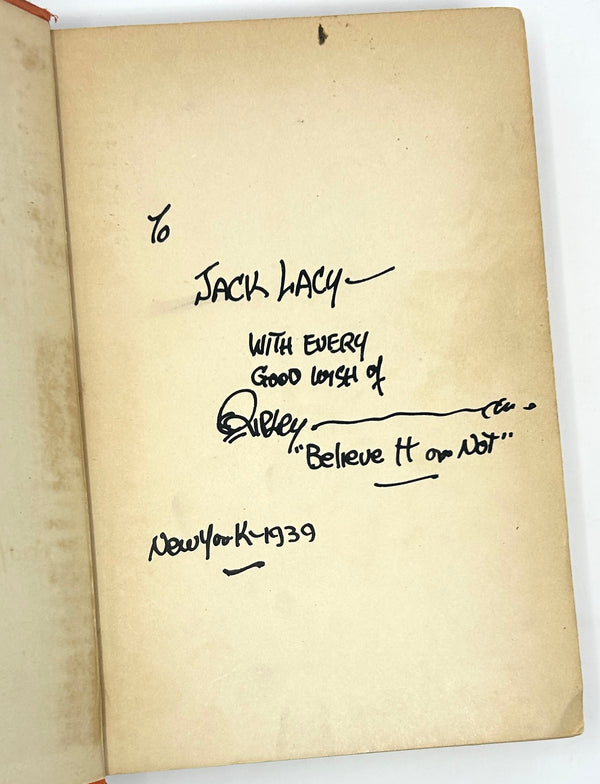 To
JACK LACY—
WITH EVERY
GOOD WISH of
Ripley
"Believe It or Not"
New York-1939